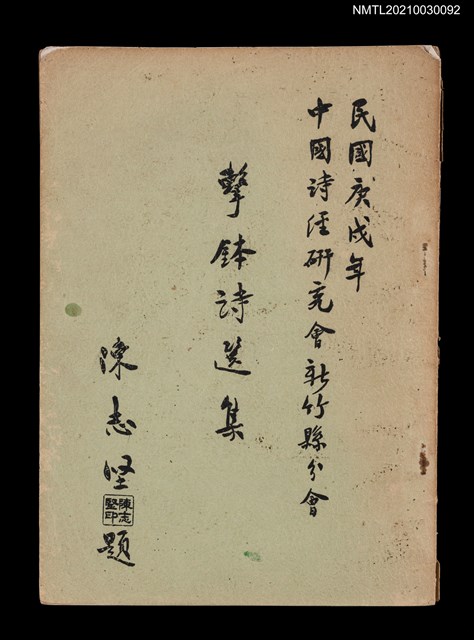 NMTL20210030092
民國庚戌年
中國詩經研究會新竹縣分會
擊鉢詩選集
陳志堅題
陳志堅印